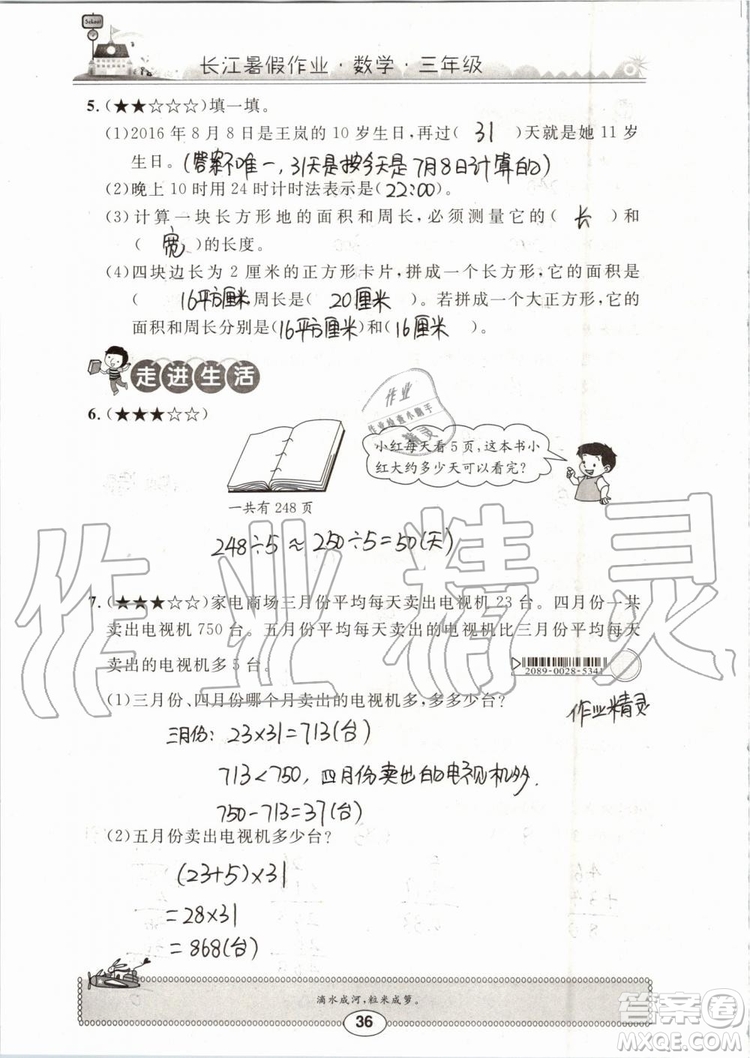 School
长江暑假作业·数学·三年级
5.(★★☆☆☆)填一填。
(1)2016年8月8日是王岚的10岁生日,再过( 31 )天就是她11岁
生日。(答案不唯一,31天是按今天是7月8日计算的)
(2)晚上10时用24时计时法表示是(22:00)。
(3)计算一块长方形地的面积和周长,必须测量它的( 长 )和
( 宽 )的长度。
(4)四块边长为2厘米的正方形卡片,拼成一个长方形,它的面积是
( 16平方厘米 周长是( 20厘米 )。若拼成一个大正方形,它的
面积和周长分别是(16平方厘米)和(16厘米)。
走进生活
6.(★★★☆☆)
小红每天看5页,这本书小
红大约多少天可以看完?
一共有248页
248÷5≈250÷5=50(天)
7.(★★★☆☆)家电商场三月份平均每天卖出电视机23台。四月份一共
卖出电视机750台。五月份平均每天卖出的电视机比三月份平均每天
卖出的电视机多5台。
2089-0028-5341
(1)三月份、四月份哪个月卖出的电视机多,多多少台?
作业精灵
三月份:23×31=713(台)
713<750,四月份卖出的电视机多.
750-713=37(台)
(2)五月份卖出电视机多少台?
(23+5)×31
=28×31
=868(台)
滴水成河,粒米成箩。
36
作业精灵
答案圈
MXQE.COM